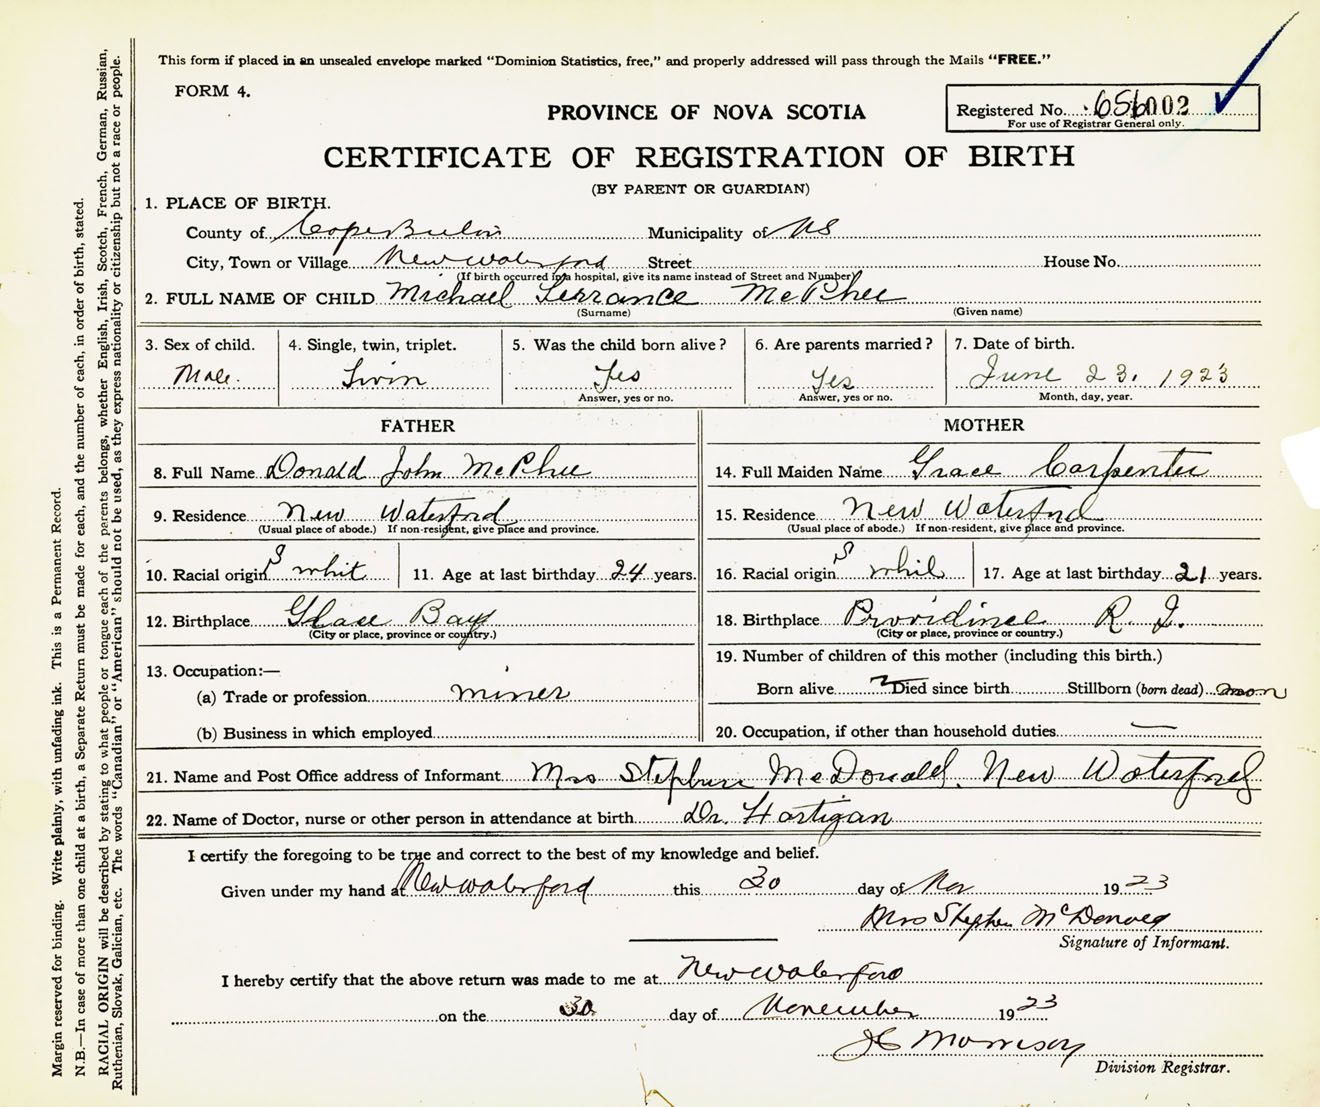 This form if placed in an unsealed envelope marked "Dominion Statistics, free," and properly addressed will pass through the Mails "FREE."
FORM 4.
Registered No.
002
For use of Registrar General only.
PROVINCE OF NOVA SCOTIA
CERTIFICATE OF REGISTRATION OF BIRTH
(BY PARENT OR GUARDIAN)
1. PLACE OF BIRTH.
County of Cape Breton Municipality of NS
City, Town or Village New Waterford Street House No.
(If birth occurred in a hospital, give its name instead of Street and Number)
2. FULL NAME OF CHILD Michael Terrance McPhee
(Surname) (Given name)
3. Sex of child. 4. Single, twin, triplet. 5. Was the child born alive? 6. Are parents married? 7. Date of birth.
Male. Twin Yes Yes June 23, 1923
Answer, yes or no. Answer, yes or no. Month, day, year.
FATHER MOTHER
8. Full Name Donald John McPhee 14. Full Maiden Name Grace Carpenter
9. Residence New Waterford 15. Residence New Waterford
(Usual place of abode.) If non-resident, give place and province. (Usual place of abode.) If non-resident, give place and province.
10. Racial origin S whit 11. Age at last birthday 24 years. 16. Racial origin S whit 17. Age at last birthday 21 years.
12. Birthplace Glace Bay 18. Birthplace Providince R. I.
(City or place, province or country.) (City or place, province or country.)
13. Occupation:— 19. Number of children of this mother (including this birth.)
(a) Trade or profession miner Born alive 2 Died since birth Stillborn (born dead)
(b) Business in which employed 20. Occupation, if other than household duties —
21. Name and Post Office address of Informant Mrs Stephen McDonald, New Waterford
22. Name of Doctor, nurse or other person in attendance at birth Dr. Hartigan
I certify the foregoing to be true and correct to the best of my knowledge and belief.
Given under my hand at New Waterford this 30 day of Nov 1923
Mrs Stephen McDonald
Signature of Informant.
I hereby certify that the above return was made to me at New Waterford
on the 30 day of November 1923
JC Morrison
Division Registrar.
Margin reserved for binding. Write plainly, with unfading ink. This is a Permanent Record.
N.B.—In case of more than one child at a birth, a Separate Return must be made for each, and the number of each, in order of birth, stated.
RACIAL ORIGIN will be described by stating to what people or tongue each of the parents belongs, whether English, Irish, Scotch, French, German, Russian,
Ruthenian, Slovak, Galician, etc. The words "Canadian" or "American" should not be used, as they express nationality or citizenship but not a race or people.